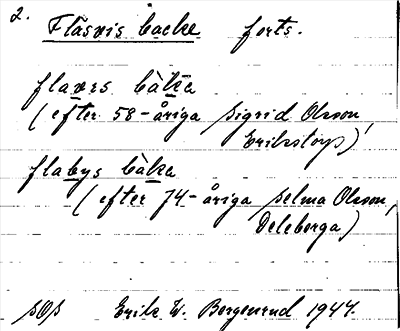 2. Flåsxis backe forts.
flaxəs bàka
(efter 58-åriga Sigrid Olsson,
Erikstorp)
flabys bàka
(efter 74-åriga Selma Olsson,
Deleberga)
SOs Erik W. Bergenrud 1947.